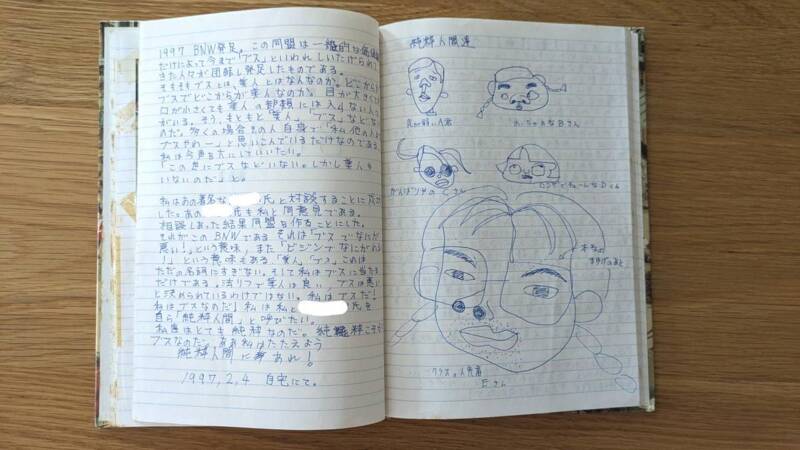 1997 BNW発足。この同盟は一般的な価値観
だけによって今まで「ブス」といわれしいたげられて
きた人々が団結し発足したものである。
そもそもブスとは、美人とはなんなのか。どこから
ブスでどこからが美人なのか。目が大きくて
口が小さくても美人の部類には入らない人
がいる。そう、もともと「美人」「ブス」などない
のだ。多くの場合その人自身で「私他の人より
ブスやわー」と思いこんでいるだけなのである。
私は今声を大にしていいたい。
「この世にブスなどいない。しかし美人も
いないのだ」と。
私はあの著名な 氏と対談することに成功
した。あの 氏も私と同意見である。
相談しあった結果同盟を作ることにした。
それがこのBNWである それは「ブスでなにが
悪い!」という意味、また「ビジンでなにがわるい
!」という意味もある。「美人」「ブス」これは
ただの名詞にすぎない。そして私はブスに当たる
だけである。法リツで美人は良い、ブスは悪い
と決められているわけではない。私はブスだ!
私はブスなのだ!私は私と 氏を
自ら「純粋人間」と呼びたい。
私達はとても純粋なのだ。純粋こそが
ブスなのだ。ああ私はたたえよう
純粋人間に栄あれ!
1997,2,4 自宅にて。
純粋人間達
気が弱いA君
おちゃめなBさん
がんばり屋のCさん
ロンゲでキュートなDくん
まゆげのあと
クラスの人気者
Eさん